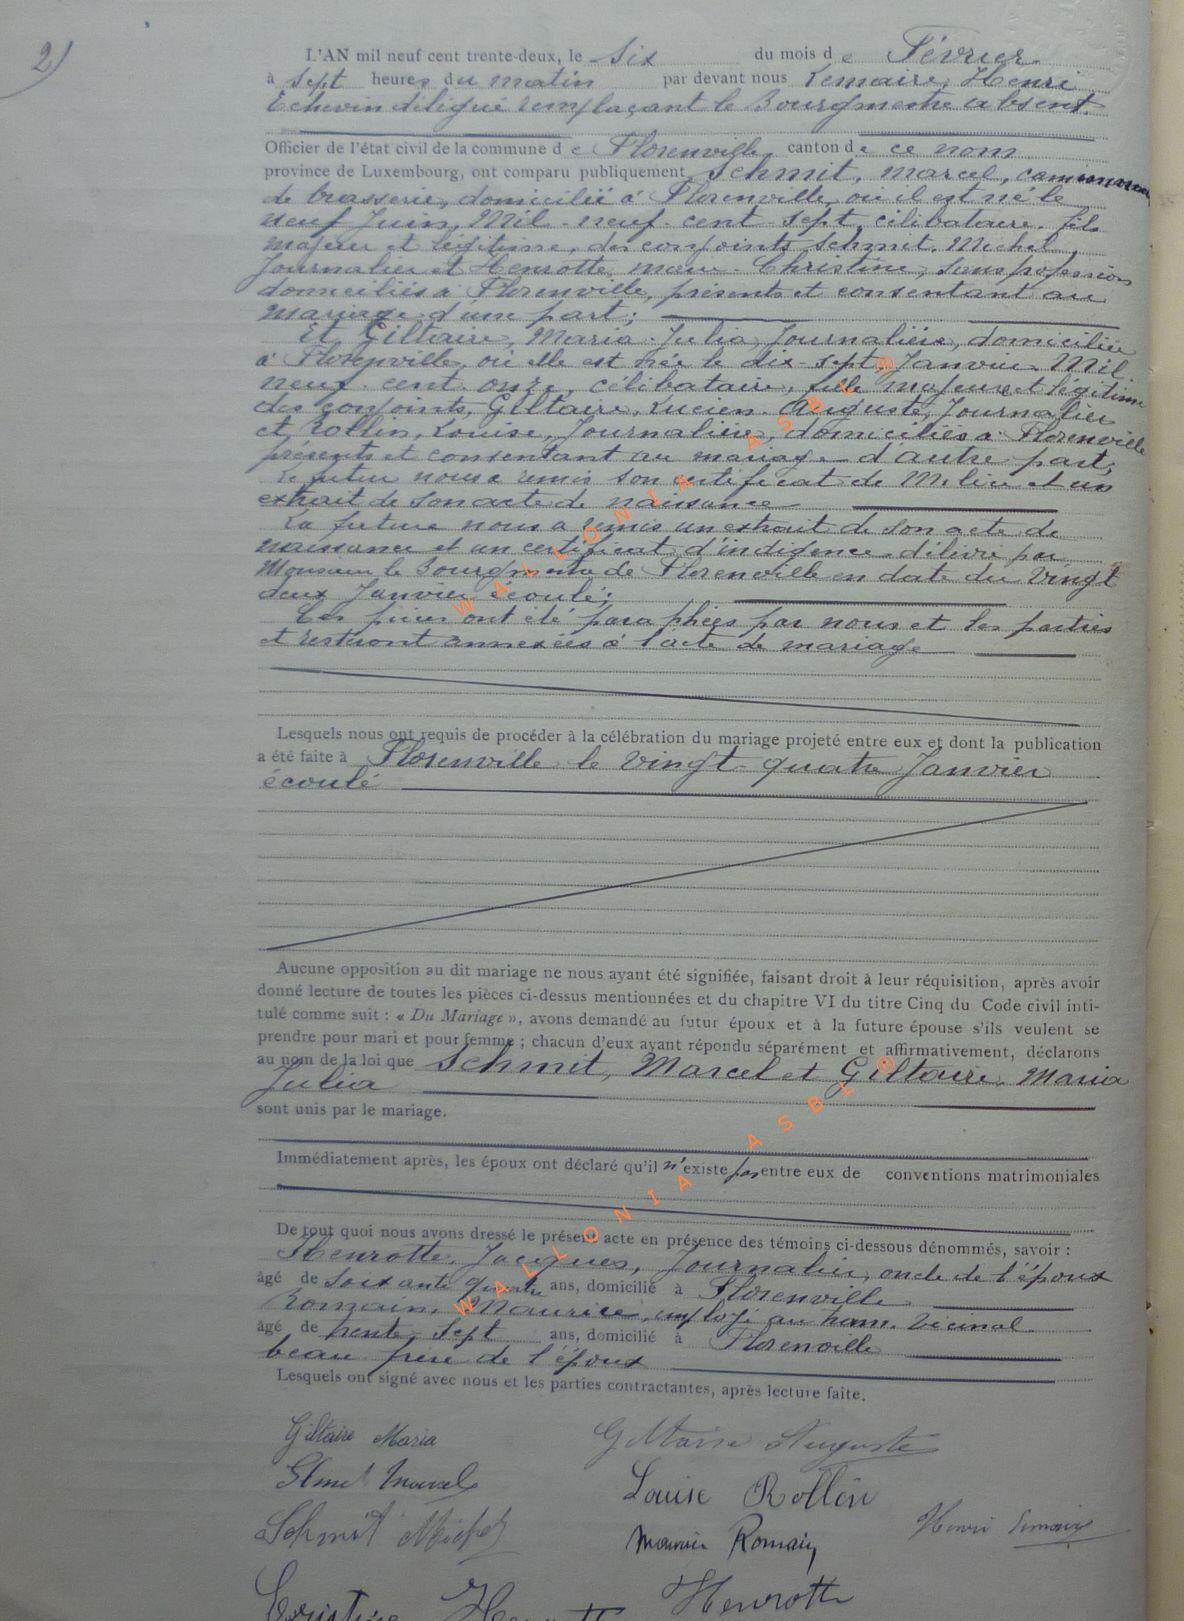 2)
L'AN mil neuf cent trente-deux, le six du mois de Février
à sept heures du matin par devant nous Lemaire, Henri
Echevin délégué remplaçant le Bourgmestre absent.
Officier de l'état civil de la commune de Florenville, canton de ce nom
province de Luxembourg, ont comparu publiquement Schmit, Marcel, camionneur
de brasserie, domicilié à Florenville, où il est né le
neuf Juin, Mil-neuf-cent-sept, célibataire, fils
majeur et légitime, des conjoints Schmit, Michel,
Journalier et Henrotte, Christine, sans profession
domiciliés à Florenville, présents et consentant au
mariage d'une part;
Et Giltaire, Maria-Julia, Journalière, domiciliée
à Florenville, où elle est née le dix-sept Janvier Mil
neuf-cent-onze, célibataire, fille majeure et légitime
des conjoints, Giltaire, Lucien-Auguste, Journalier
et Rollin, Louise, Journalière, domiciliés à Florenville
présents et consentant au mariage d'autre part;
Le futur nous a remis son certificat de Milice et un
extrait de son acte de naissance
La future nous a remis un extrait de son acte de
naissance et un certificat d'indigence délivré par
Monsieur le Bourgmestre de Florenville en date du Vingt
deux Janvier écoulé;
Ces pièces ont été paraphées par nous et les parties
et resteront annexées à l'acte de mariage
Lesquels nous ont requis de procéder à la célébration du mariage projeté entre eux et dont la publication
a été faite à Florenville le vingt-quatre Janvier
écoulé
Aucune opposition au dit mariage ne nous ayant été signifiée, faisant droit à leur réquisition, après avoir
donné lecture de toutes les pièces ci-dessus mentionnées et du chapitre VI du titre Cinq du Code civil inti-
tulé comme suit : « Du Mariage », avons demandé au futur époux et à la future épouse s'ils veulent se
prendre pour mari et pour femme ; chacun d'eux ayant répondu séparément et affirmativement, déclarons
au nom de la loi que Schmit, Marcel et Giltaire, Maria
Julia
sont unis par le mariage.
Immédiatement après, les époux ont déclaré qu'il n'existe pas entre eux de conventions matrimoniales
De tout quoi nous avons dressé le présent acte en présence des témoins ci-dessous dénommés, savoir :
Henrotte, Jacques, Journalier, oncle de l'époux
âgé de soixante quatre ans, domicilié à Florenville
Romain, Maurice, employé au tram. Vicinal
âgé de trente sept ans, domicilié à Florenville
beau frère de l'époux
Lesquels ont signé avec nous et les parties contractantes, après lecture faite.
Giltaire Maria Giltaire Auguste
Marcel Louise Rollin
Schmit Michel Maurice Romain Henri Lemaire
Christine Henrotte
WALLONIA ASBL ®
WALLONIA ASBL ®